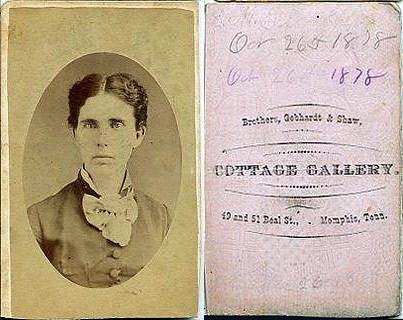 Oct 26th 1878
Oct 26th 1878
Brothers, Gebhardt & Shaw,
COTTAGE GALLERY.
49 and 51 Beal St., . Memphis, Tenn.